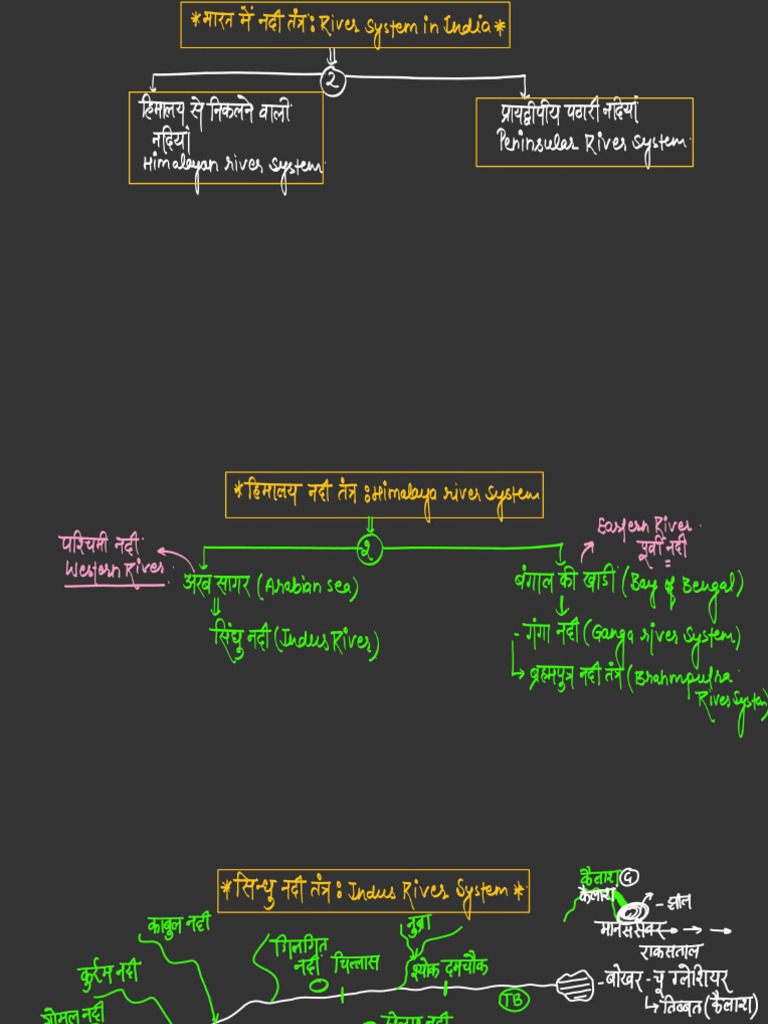 *भारत में नदी तंत्र : River System in India*
2
हिमालय से निकलने वाली
नदियां
Himalayan river system
प्रायद्वीपीय पठारी नदियां
Peninsular River System
*हिमालय नदी तंत्र : Himalaya river System
2
पश्चिमी नदी
Western River
Eastern River
पूर्वी नदी
अरब सागर (Arabian Sea)
सिंधु नदी (Indus River)
बंगाल की खाडी (Bay of Bengal)
- गंगा नदी (Ganga river System)
ब्रह्मपुत्र नदी तंत्र (Brahmputra
River System)
*सिन्धु नदी तंत्र : Indus River System*
कैलाश G
कैलाश
- झील
मानसरोवर
राकसताल
काबुल नदी
नुब्रा
गिलगित
नदी
चिल्लास
श्योक दमचौक
कुर्रम नदी
TB
- बोखर - चू ग्लेशियर
तिब्बत (कैलाश)
गोमल नदी